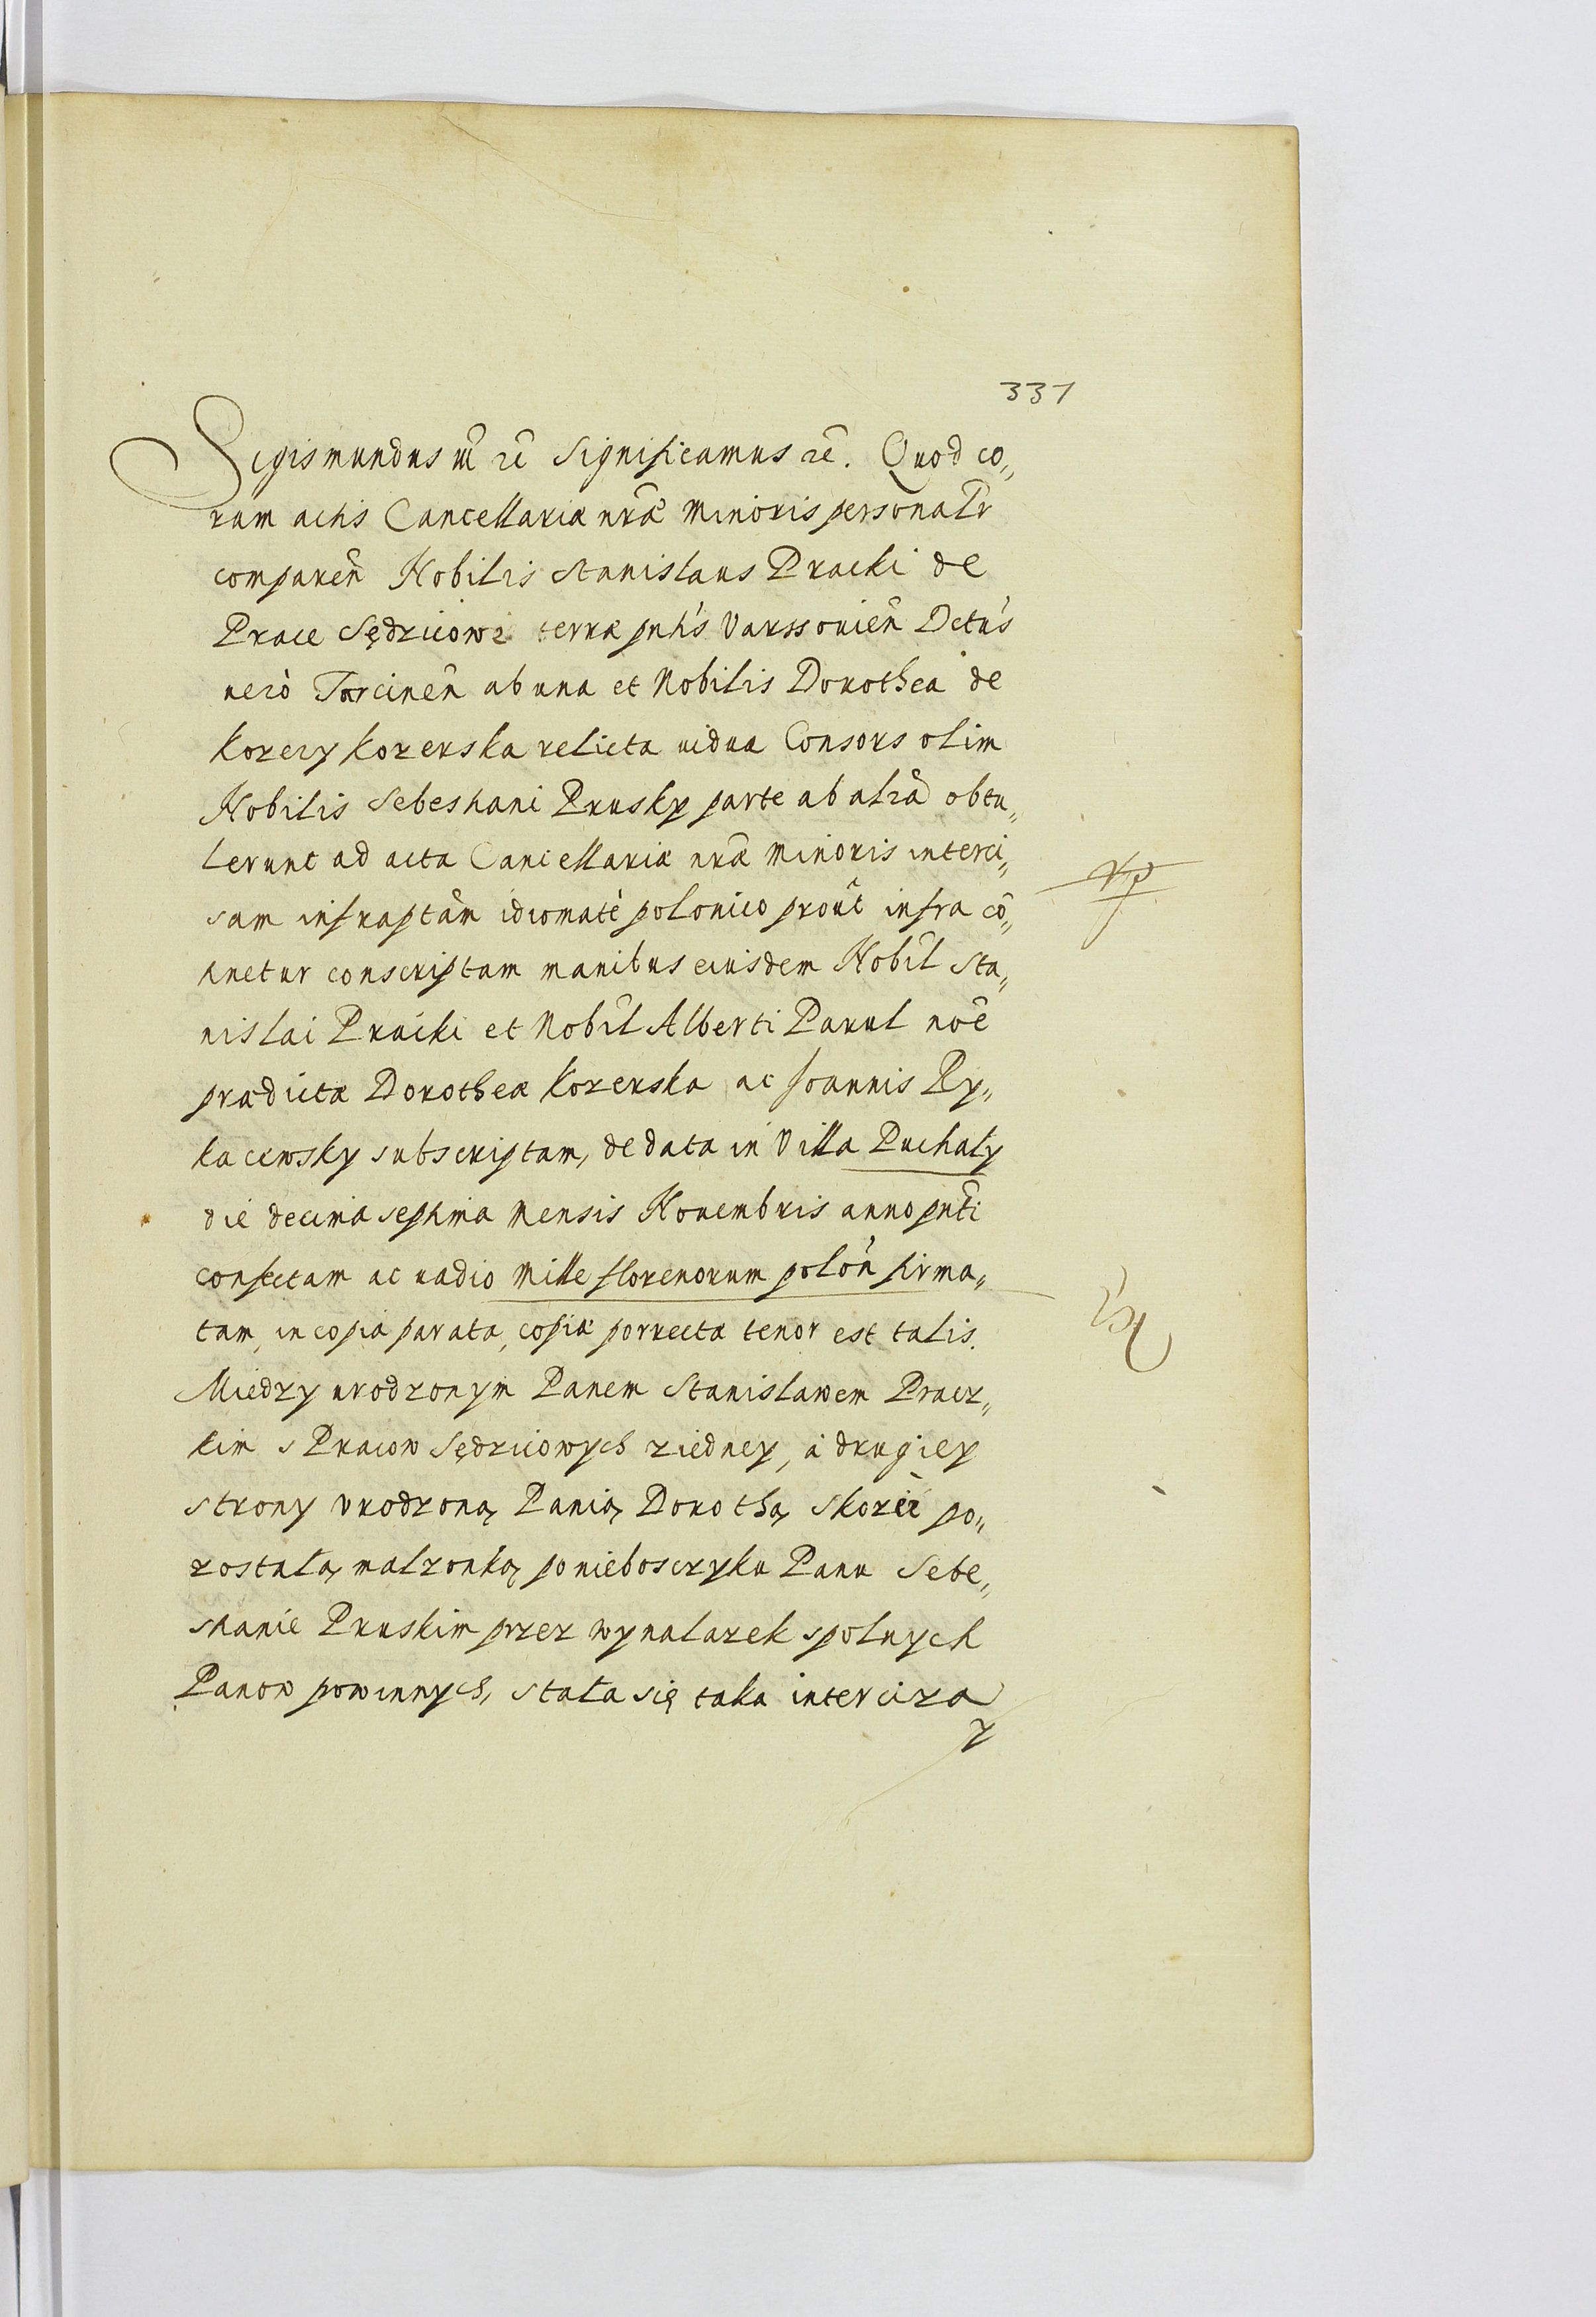 331
Sigismundus III r̃c Significamus r̃c. Quod co„
ram actis Cancellariæ nr̃æ Minoris personalr̃
comparen̄ Nobilis Stanislaus Pracki de
Prace Sędzicowe terræ pnt̃is Varssouien̄ Dctũs
uerò Torcinen̄ ab una et Nobilis Dorothea de
Korzeiy Korzerska relicta uidua Consors olim
Nobilis Sebestiani Prusky parte ab alr̃a obtu„
lerunt ad acta Cancellariæ nr̃æ Minoris interci„
sam infraptãm idiomate polonico prout infra cõ„
tinetur conscriptam manibus eiusdem Nobil̃ Sta„
nislai Pracki et Nobil̃ Alberti Parul noĩe
prædictæ Dorotheæ Korzerska ac Joannis Ry„
kaczewsky subscriptam, de data in Villa Puchały
die decima septima Mensis Nouembris anno pnt̃i
confectam ac uadio Mille florenorum polon̄ firma„
tam, in copia parata, copiæ porrectæ tenor est talis.
Miedzy urodzonym Panem Stanisławem Pracz„
kim s Pracow Sędzicowych z iedney, a drugiey
strony Vrodzoną Panią Dorothą Skorzei po„
zostałą małzonką po nieboszczyku Panu Sebe„
stianie Pruskim przez wynalazek spolnych
Panow powinnych, stała się taka interciza